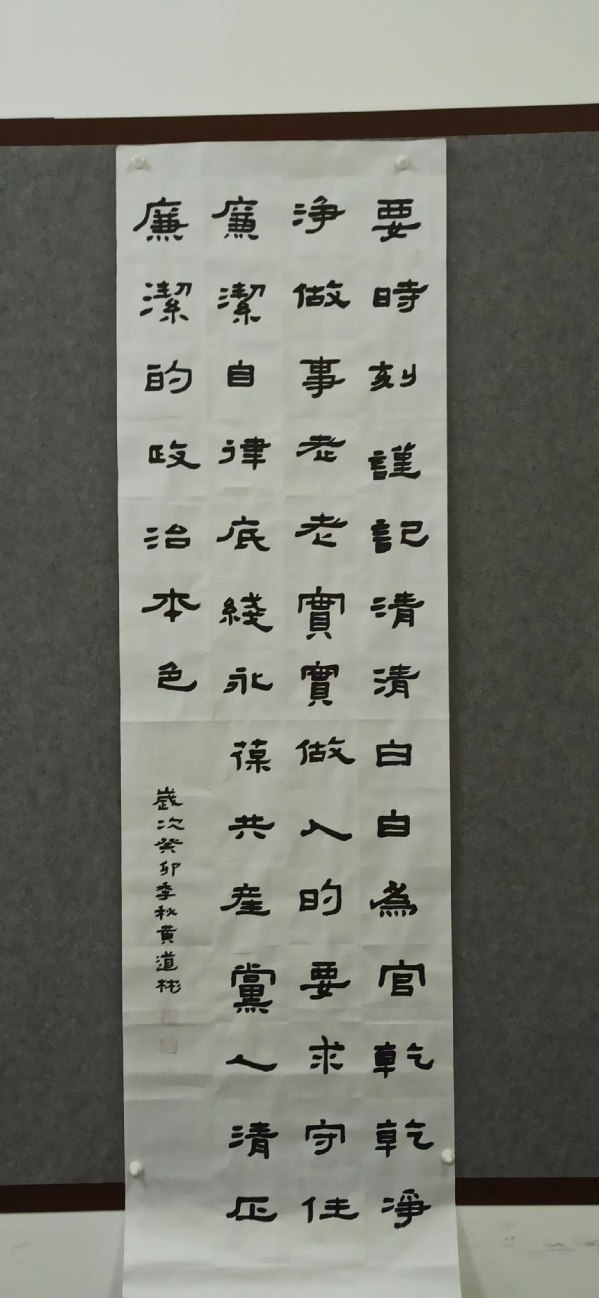 要時刻謹記清清白白為官乾乾淨
淨做事老老實實做人的要求守住
廉潔自律底綫永葆共產黨人清正
廉潔的政治本色
歲次癸卯季秋黄道彬